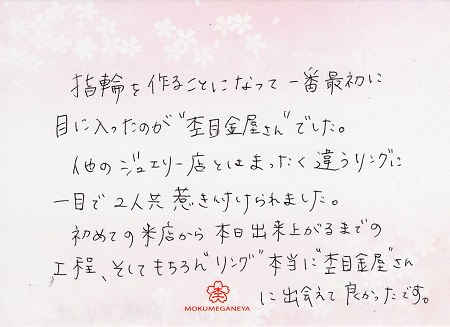 指輪を作ることになって一番最初に
目に入ったのが"杢目金屋さん"でした。
他のジュエリー店とはまったく違うリングに
一目で2人共惹き付けられました。
初めての来店から本日出来上がるまでの
工程、そしてもちろん"リング"本当に"杢目金屋"さん
に出会えて良かったです。
MOKUMEGANEYA